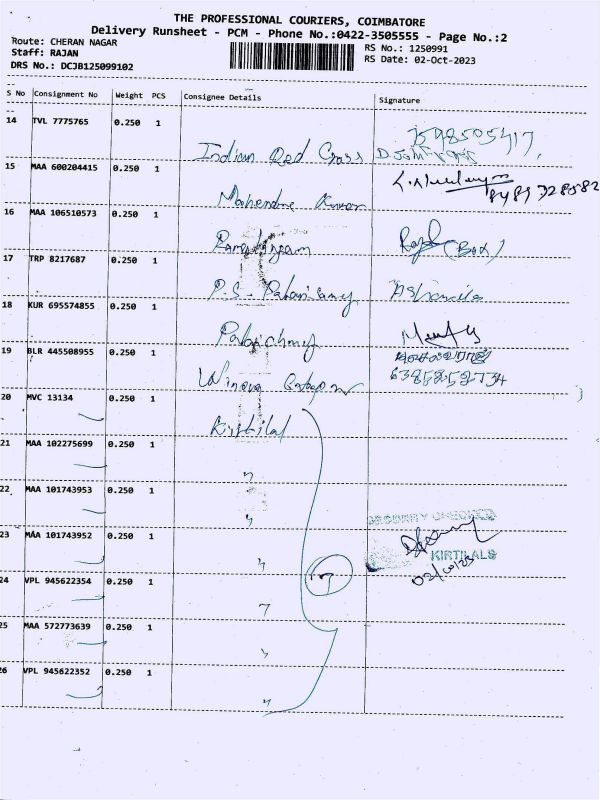 THE PROFESSIONAL COURIERS, COIMBATORE
Delivery Runsheet - PCM - Phone No.:0422-3505555 - Page No.:2
Route: CHERAN NAGAR
Staff: RAJAN
DRS No.: DCJB125099102
RS No.: 1250991
RS Date: 02-Oct-2023
S No Consignment No Weight PCS Consignee Details Signature
14 TVL 7775765 0.250 1
Indian Red Cross
15 MAA 600204415 0.250 1
Mahendra Kumar
16 MAA 106510573 0.250 1
(Box)
17 TRP 8217687 0.250 1
P.S. Palanisamy
18 KUR 695574855 0.250 1
19 BLR 445508955 0.250 1
Winova
6385252734
20 MVC 13134 0.250 1
Kirtilal
21 MAA 102275699 0.250 1
"
22 MAA 101743953 0.250 1
"
SECURITY CHECKED
23 MAA 101743952 0.250 1
"
KIRTILALS
24 VPL 945622354 0.250 1
"
7
02/10/23
25 MAA 572773639 0.250 1
"
26 VPL 945622352 0.250 1
"